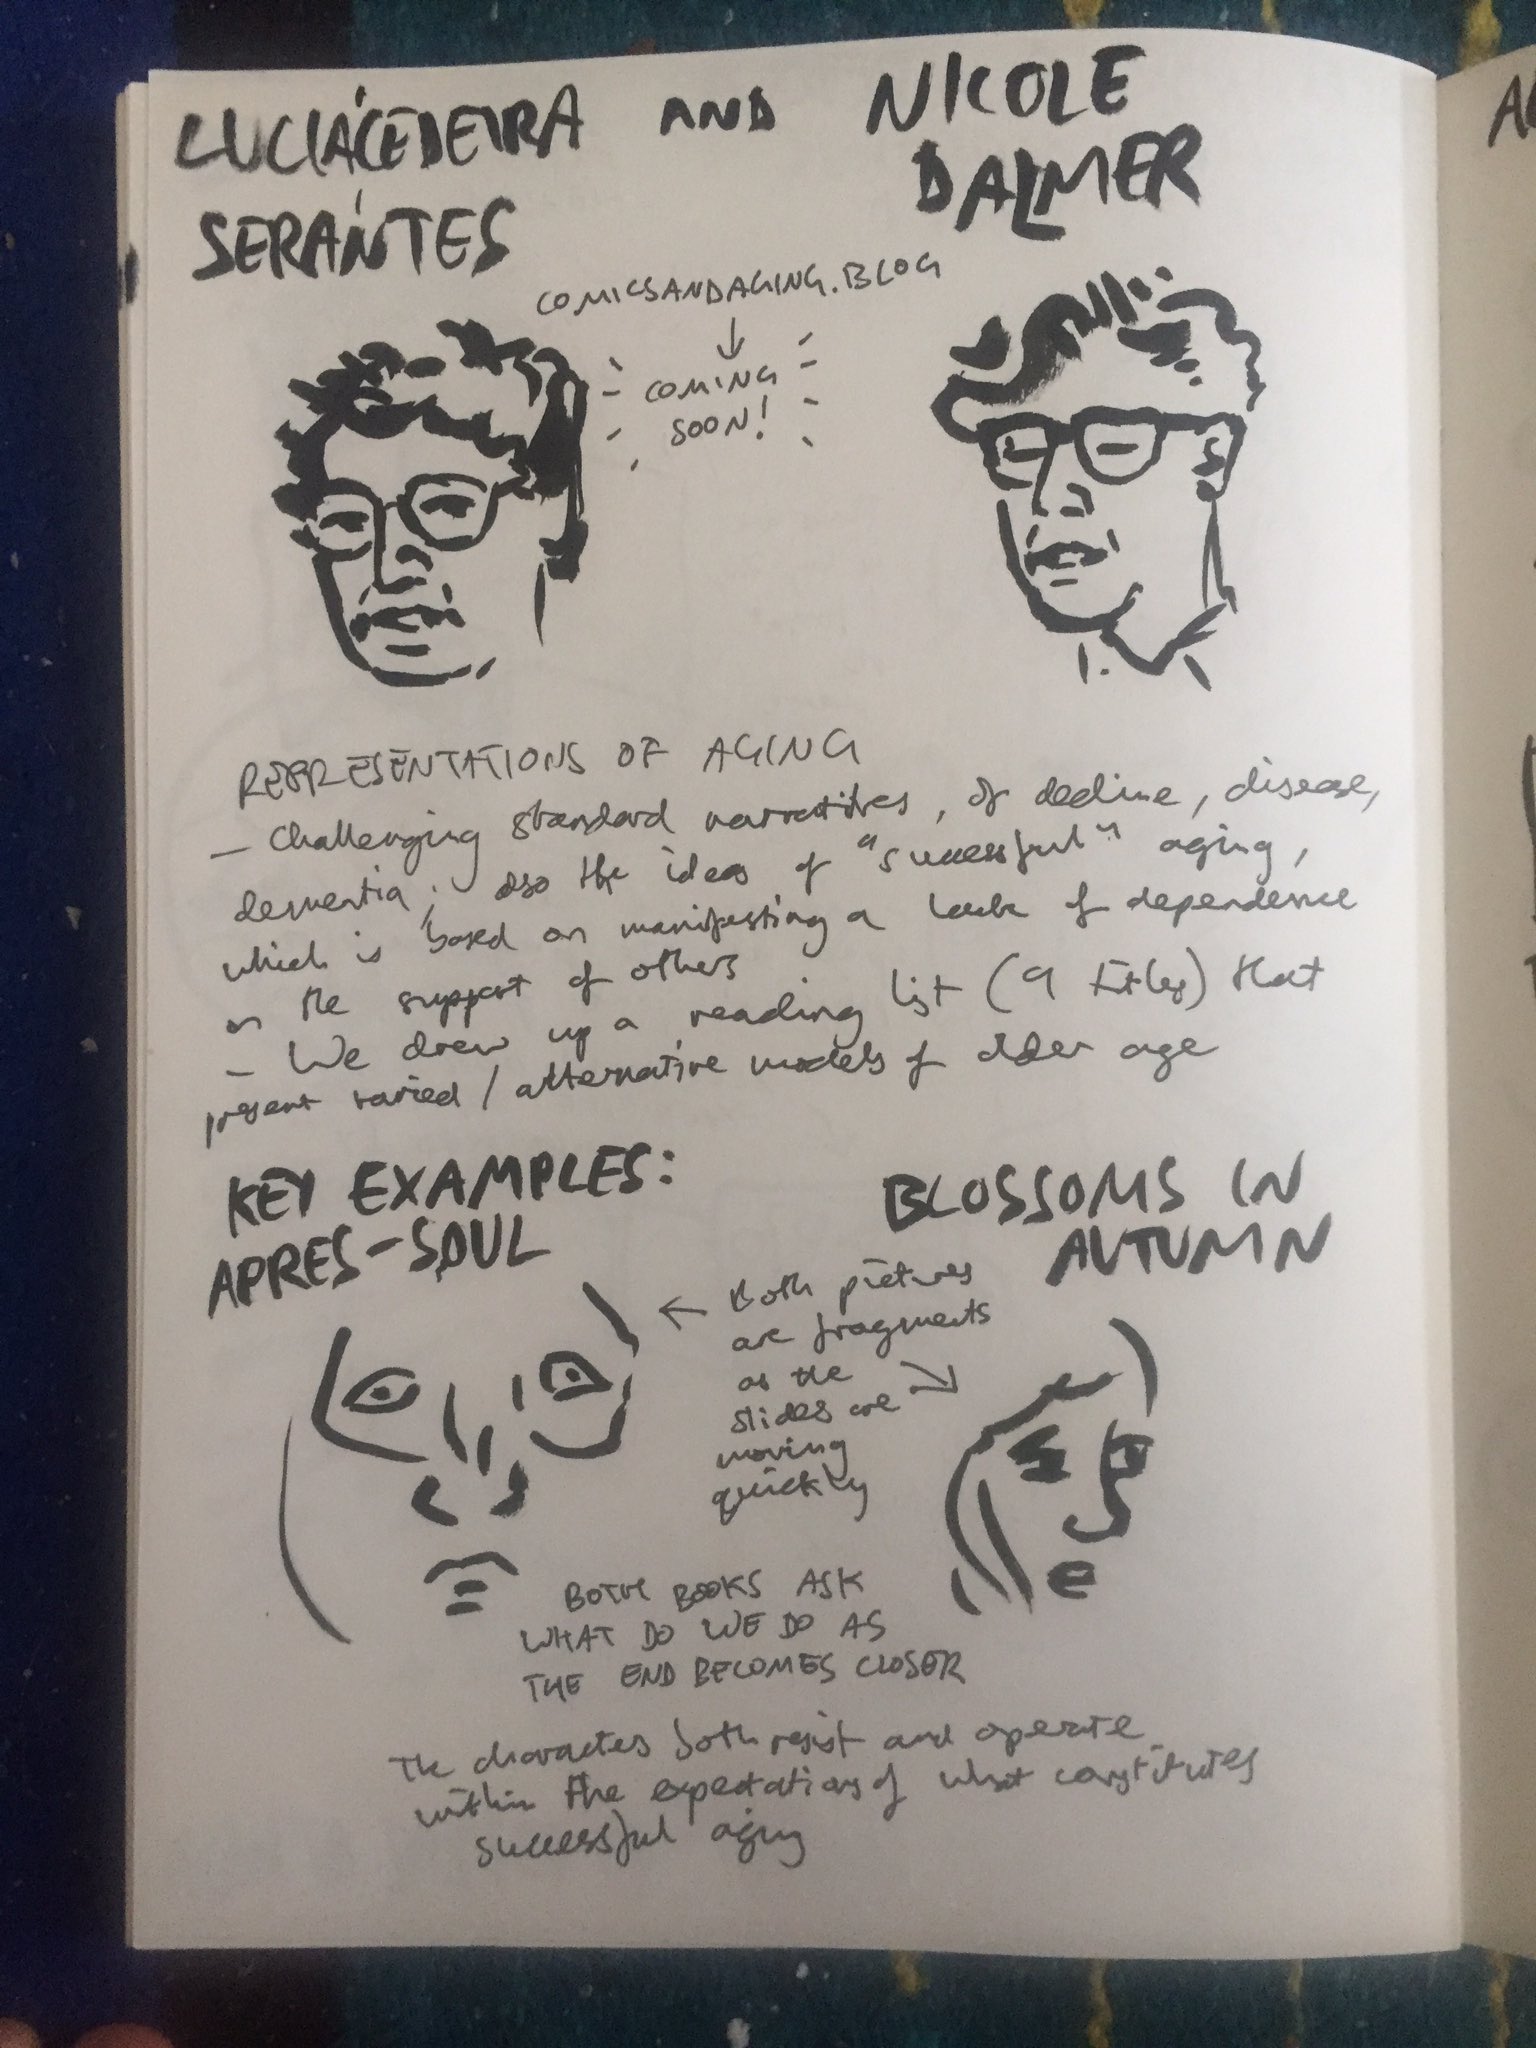 LUCIA CEDEIRA AND NICOLE
SERANTES DALMER
COMICSANDAGING.BLOG
COMING
SOON!
REPRESENTATIONS OF AGING
– Challenging standard narratives, of decline, disease,
dementia; also the ideas of "successful" aging,
which is based on manifesting a lack of dependence
on the support of others
– We drew up a reading list (9 titles) that
present varied / alternative models of older age
KEY EXAMPLES:
APRES-SOUL
BLOSSOMS IN
AUTUMN
Both pictures
are fragments
as the
slides are
moving
quickly
BOTH BOOKS ASK
WHAT DO WE DO AS
THE END BECOMES CLOSER
The characters both resist and operate
within the expectations of what constitutes
successful aging